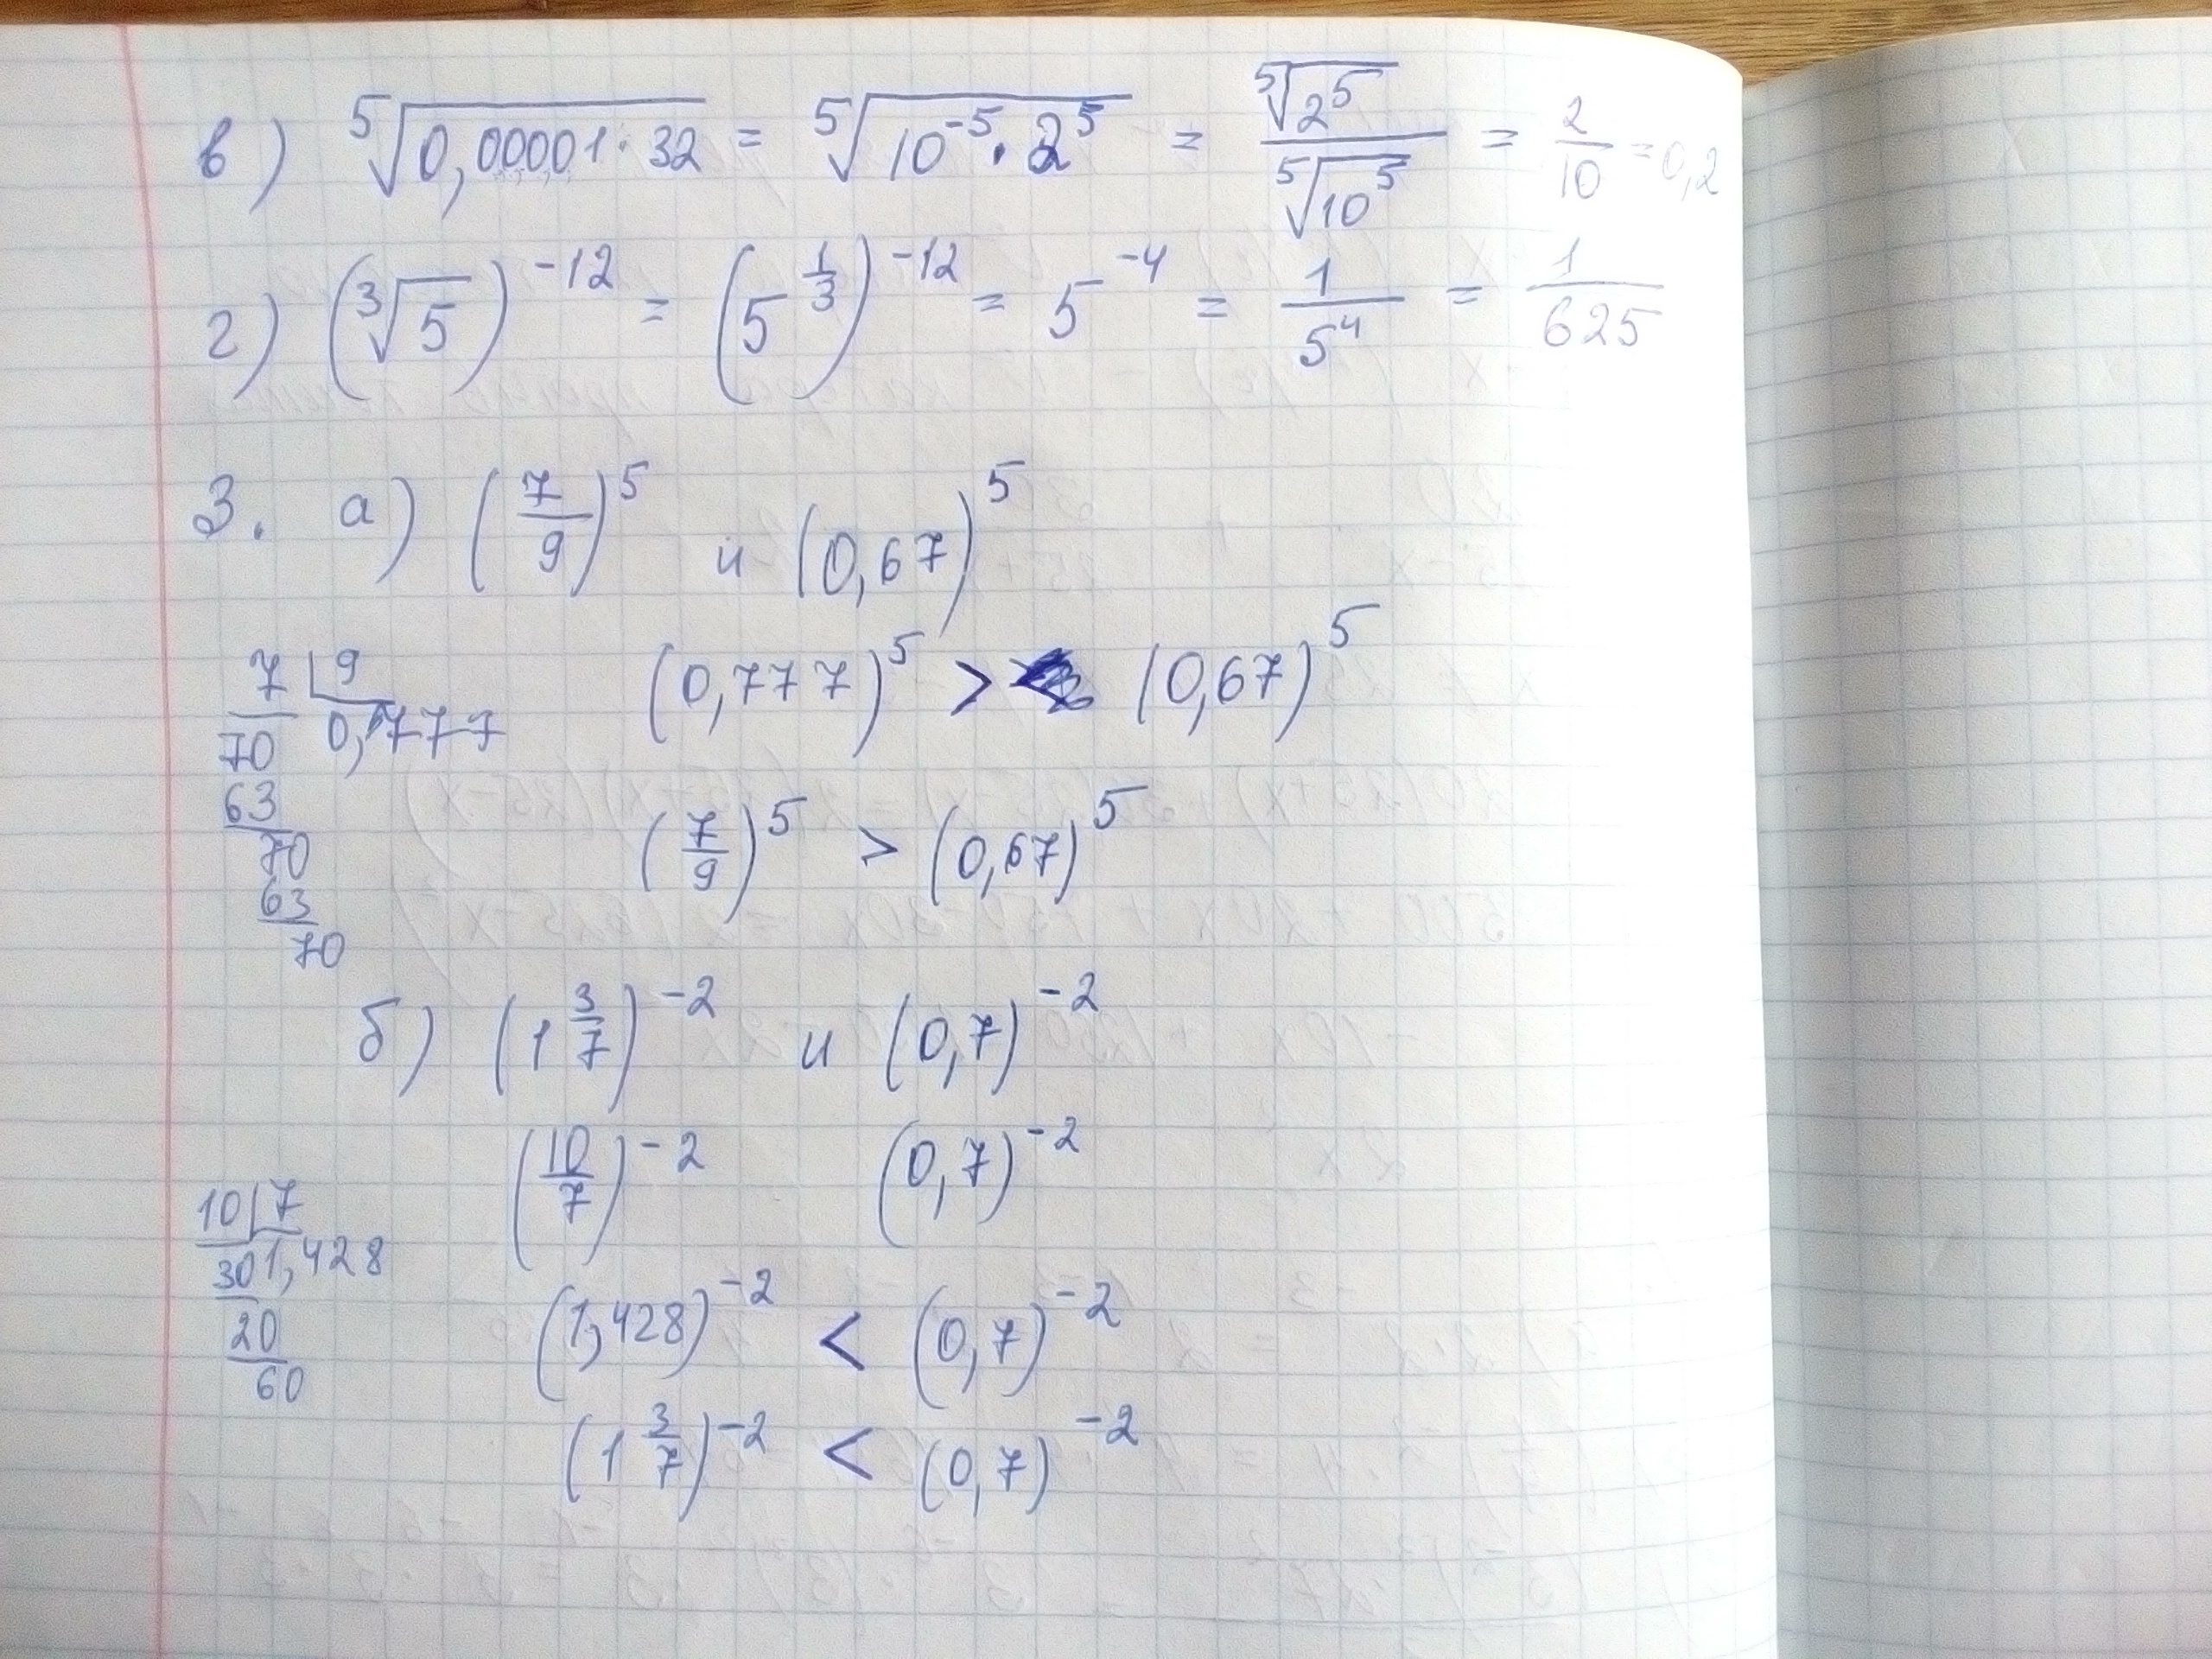 в) ⁵√(0,00001 · 32) = ⁵√(10⁻⁵ · 2⁵) = ⁵√(2⁵) / ⁵√(10⁵) = 2/10 = 0,2
г) (³√5)⁻¹² = (5^(1/3))⁻¹² = 5⁻⁴ = 1/5⁴ = 1/625
3. а) (7/9)⁵ и (0,67)⁵
7 | 9
70 0,777
63
70
63
70
(0,777)⁵ > (0,67)⁵
(7/9)⁵ > (0,67)⁵
б) (1 3/7)⁻² и (0,7)⁻²
(10/7)⁻² (0,7)⁻²
10 | 7
30 1,428
20
60
(1,428)⁻² < (0,7)⁻²
(1 3/7)⁻² < (0,7)⁻²